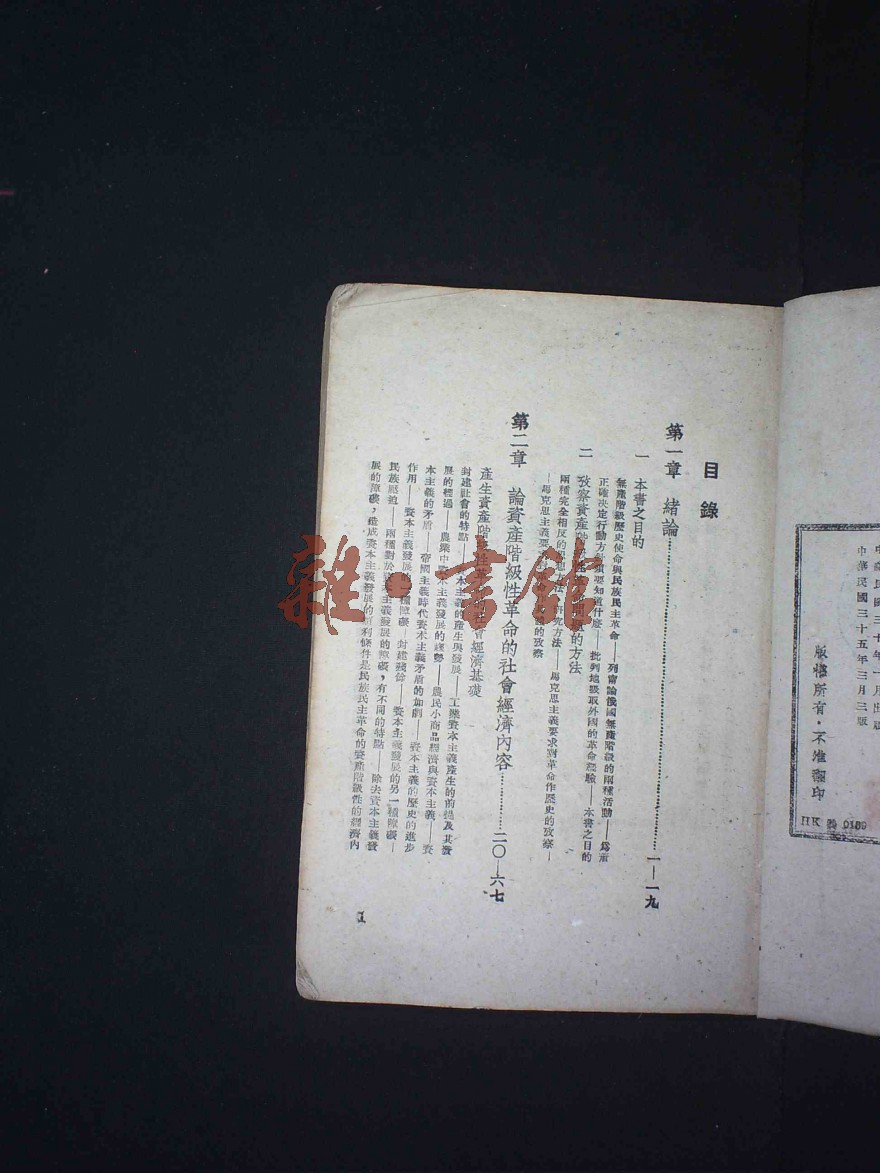 中華民國三十年一月出版
中華民國三十五年三月三版
版權所有·不准翻印
HK 0189
目錄
第一章 緒論……一—一九
一 本書之目的
無產階級歷史使命與民族民主革命——列甯論俄國無產階級的兩種活動——爲着
正確决定行動方須要知道什麽——批判地吸取外國的革命經驗——本書之目的
二 攷察資產階的方法
兩種完全相反的方法——馬克思主義要求對革命作歷史的攷察—
—馬克思主義要的攷察
第二章 論資產階級性革命的社會經濟內容……二〇—六七
產生資產階級性革會經濟基礎
封建社會的特點——本主義的產生與發展——工業資本主義產生的前提及其發
展的經過——農業中資本主義發展的趨勢——農民小商品經濟與資本主義——資
本主義的矛盾——帝國主義時代資本主義矛盾的加劇——資本主義的歷史的進步
作用——資本主義發展種障礙——封建殘餘——資本主義發展的另一種障礙—
民族壓迫——兩種對於資本主義發展的障礙,有不同的特點——除去資本主義發
展的障礙,造成資本主義發展的順利條件是民族民主革命的資產階級性的經濟內
1
雜·書館